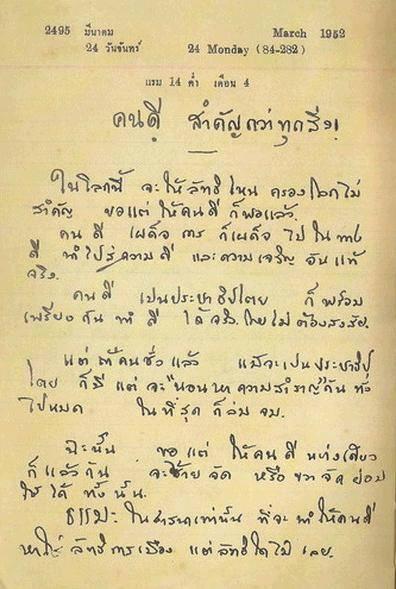 2495 มีนาคม March 1952
24 วันจันทร์ 24 Monday (84-282)
แรม 14 ค่ำ เดือน 4
คนดี สำคัญกว่าทุกสิ่ง!
ในโลกนี้ จะให้ลัทธิไหน ครองโลกไม่
สำคัญ ขอแต่ ให้คนดี ก็พอแล้ว.
คนดี เผด็จการ ก็เผด็จ ไปในทาง
ดี นำไปสู่ความดี และความเจริญ อันแท้
จริง.
คนดี เป็นประชาธิปไตย ก็พร้อม
เพรียงกัน ทำดี ได้จริง โดยไม่ต้องสงสัย.
แต่ถ้าคนชั่ว แล้ว แม้จะเป็นประชาธิป
ไตย ก็มีแต่จะ "นอนหาความสำราญ" กัน
ไปหมด ในที่สุด ก็ล่มจม.
ฉะนั้น ขอแต่ ให้คนดี อย่างเดียว
ก็แล้วกัน จะซ้ายจัด หรือ ขวาจัด ย่อม
ใช้ได้ ทั้งนั้น.
ธรรมะ ในศาสนาเท่านั้น ที่จะ ทำให้คนดี
หาใช่ ลัทธิการเมือง แต่ลัทธิใดไม่ เลย.